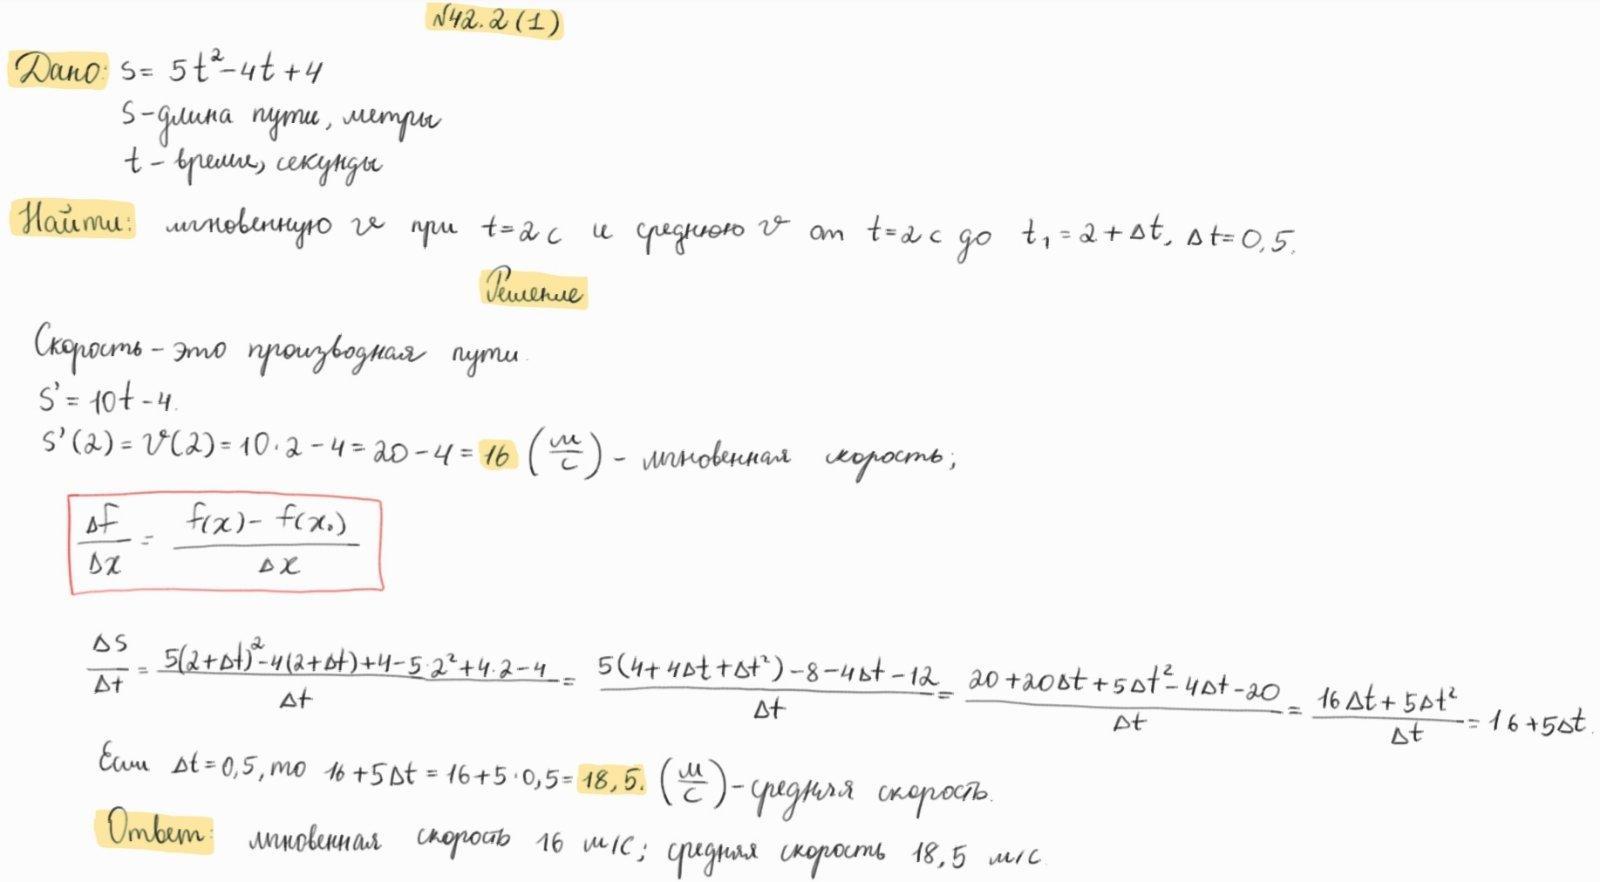 №42.2(1)
Дано: S= 5t²-4t+4
S-длина пути, метры
t- время, секунды
Найти: мгновенную v при t=2с и среднюю v от t=2с до t₁=2+Δt, Δt=0,5.
Решение
Скорость-это производная пути.
S'=10t-4.
S'(2)=V(2)=10·2-4=20-4=16 (м/с) - мгновенная скорость;
Δf/Δx = (f(x)-f(x₀))/Δx
ΔS/Δt = (5(2+Δt)²-4(2+Δt)+4-5·2²+4·2-4)/Δt = (5(4+4Δt+Δt²)-8-4Δt-12)/Δt = (20+20Δt+5Δt²-4Δt-20)/Δt = (16Δt+5Δt²)/Δt = 16+5Δt.
Если Δt=0,5, то 16+5Δt=16+5·0,5=18,5. (м/с)-средняя скорость.
Ответ: мгновенная скорость 16 м/с; средняя скорость 18,5 м/с.